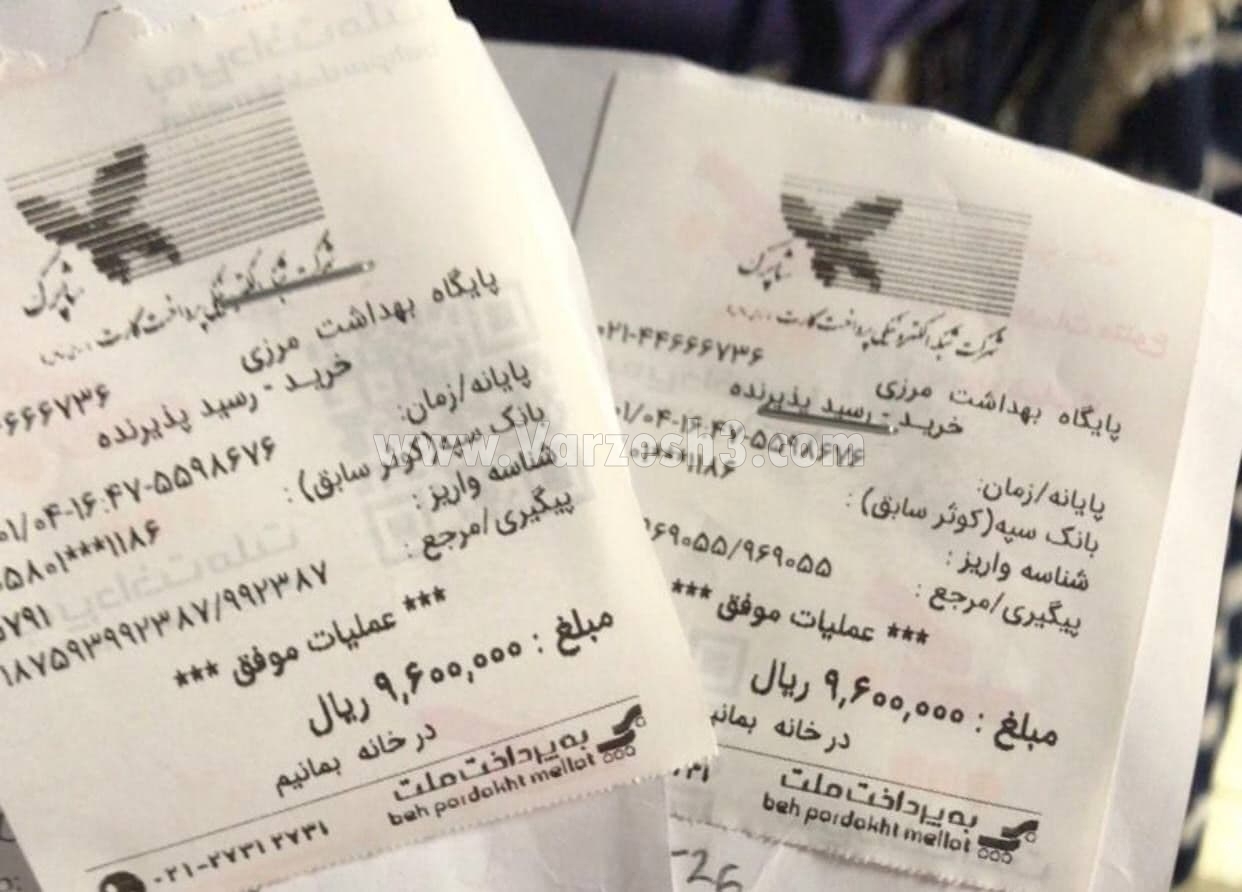 شاپرک
شرکت شبکه الکترونیکی پرداخت کارت
پایگاه بهداشت مرزی
۶۶۶۷۳۶
خرید - رسید پذیرنده
پایانه/زمان:
۰۱/۰۴-۱۶:۴۷-۵۵۹۸۶۷۶
بانک سپه(کوثر سابق) :
۵۸۰۱***۱۱۸۶
شناسه واریز :
۵۷۹۱
پیگیری/مرجع :
۱۸۷۵۹۳۹۹۲۳۸۷/۹۹۲۳۸۷
*** عملیات موفق ***
مبلغ : ۹,۶۰۰,۰۰۰ ریال
در خانه بمانیم
به پرداخت ملت
beh pardakht mellat
۰۲۱-۲۷۳۱ ۲۷۳۱
شاپرک
شرکت شبکه الکترونیکی پرداخت کارت
پایگاه بهداشت مرزی
۰۲۱-۴۴۶۶۶۷۳۶
خرید - رسید پذیرنده
پایانه/زمان:
۰۱/۰۴-۱۶:۴۷-۵۵۹۸۶۷۶
بانک سپه(کوثر سابق) :
***۱۱۸۶
شناسه واریز :
پیگیری/مرجع :
۹۶۹۰۵۵/۹۶۹۰۵۵
*** عملیات موفق ***
مبلغ : ۹,۶۰۰,۰۰۰ ریال
در خانه
به پرداخت ملت
beh pardakht mellat
-26
www.Varzesh3.com